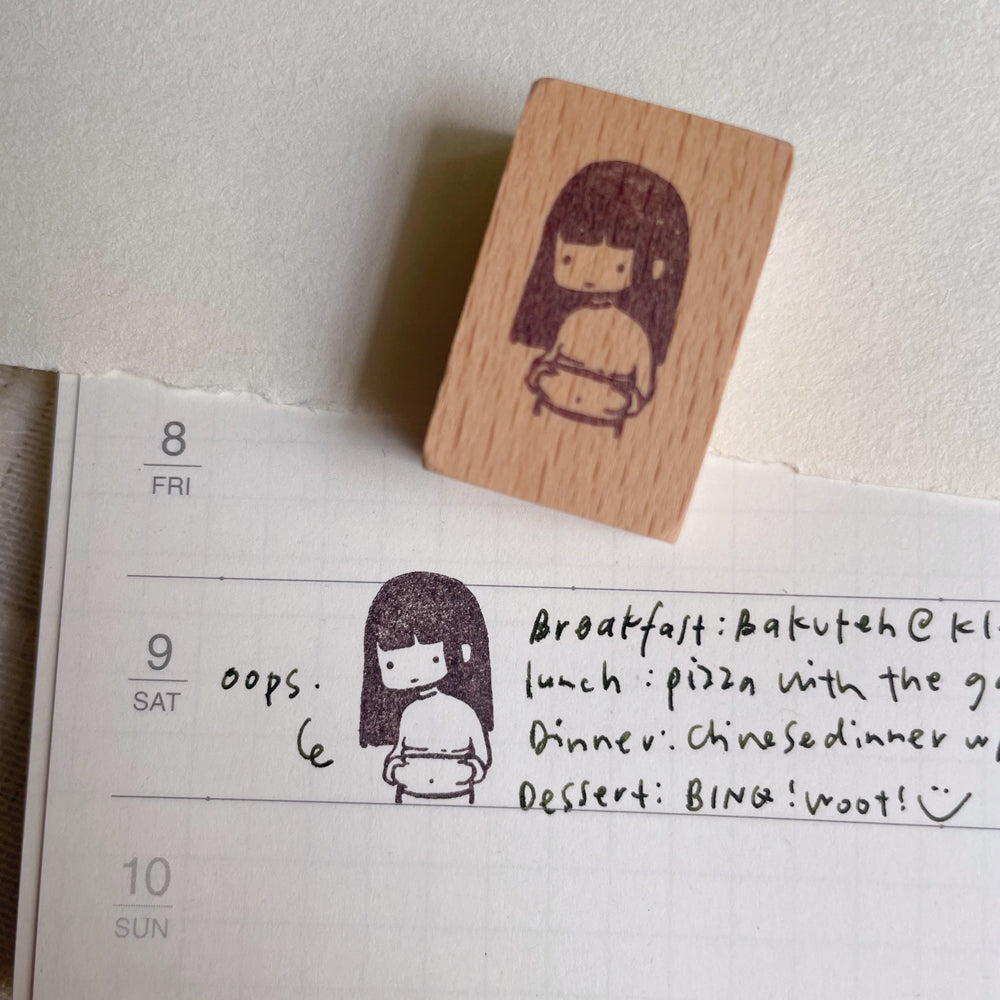 8
FRI
9
SAT
oops.
Breakfast: Bakuteh @ kl
lunch : pizza with the
Dinner: Chinese dinner
Dessert: BING! woot!
10
SUN